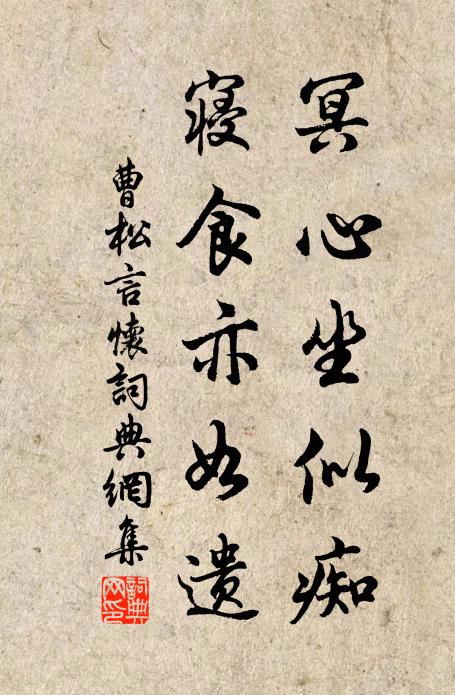 冥心坐似痴
寢食亦如遺
曹松言懷詞典網集
詞典網印